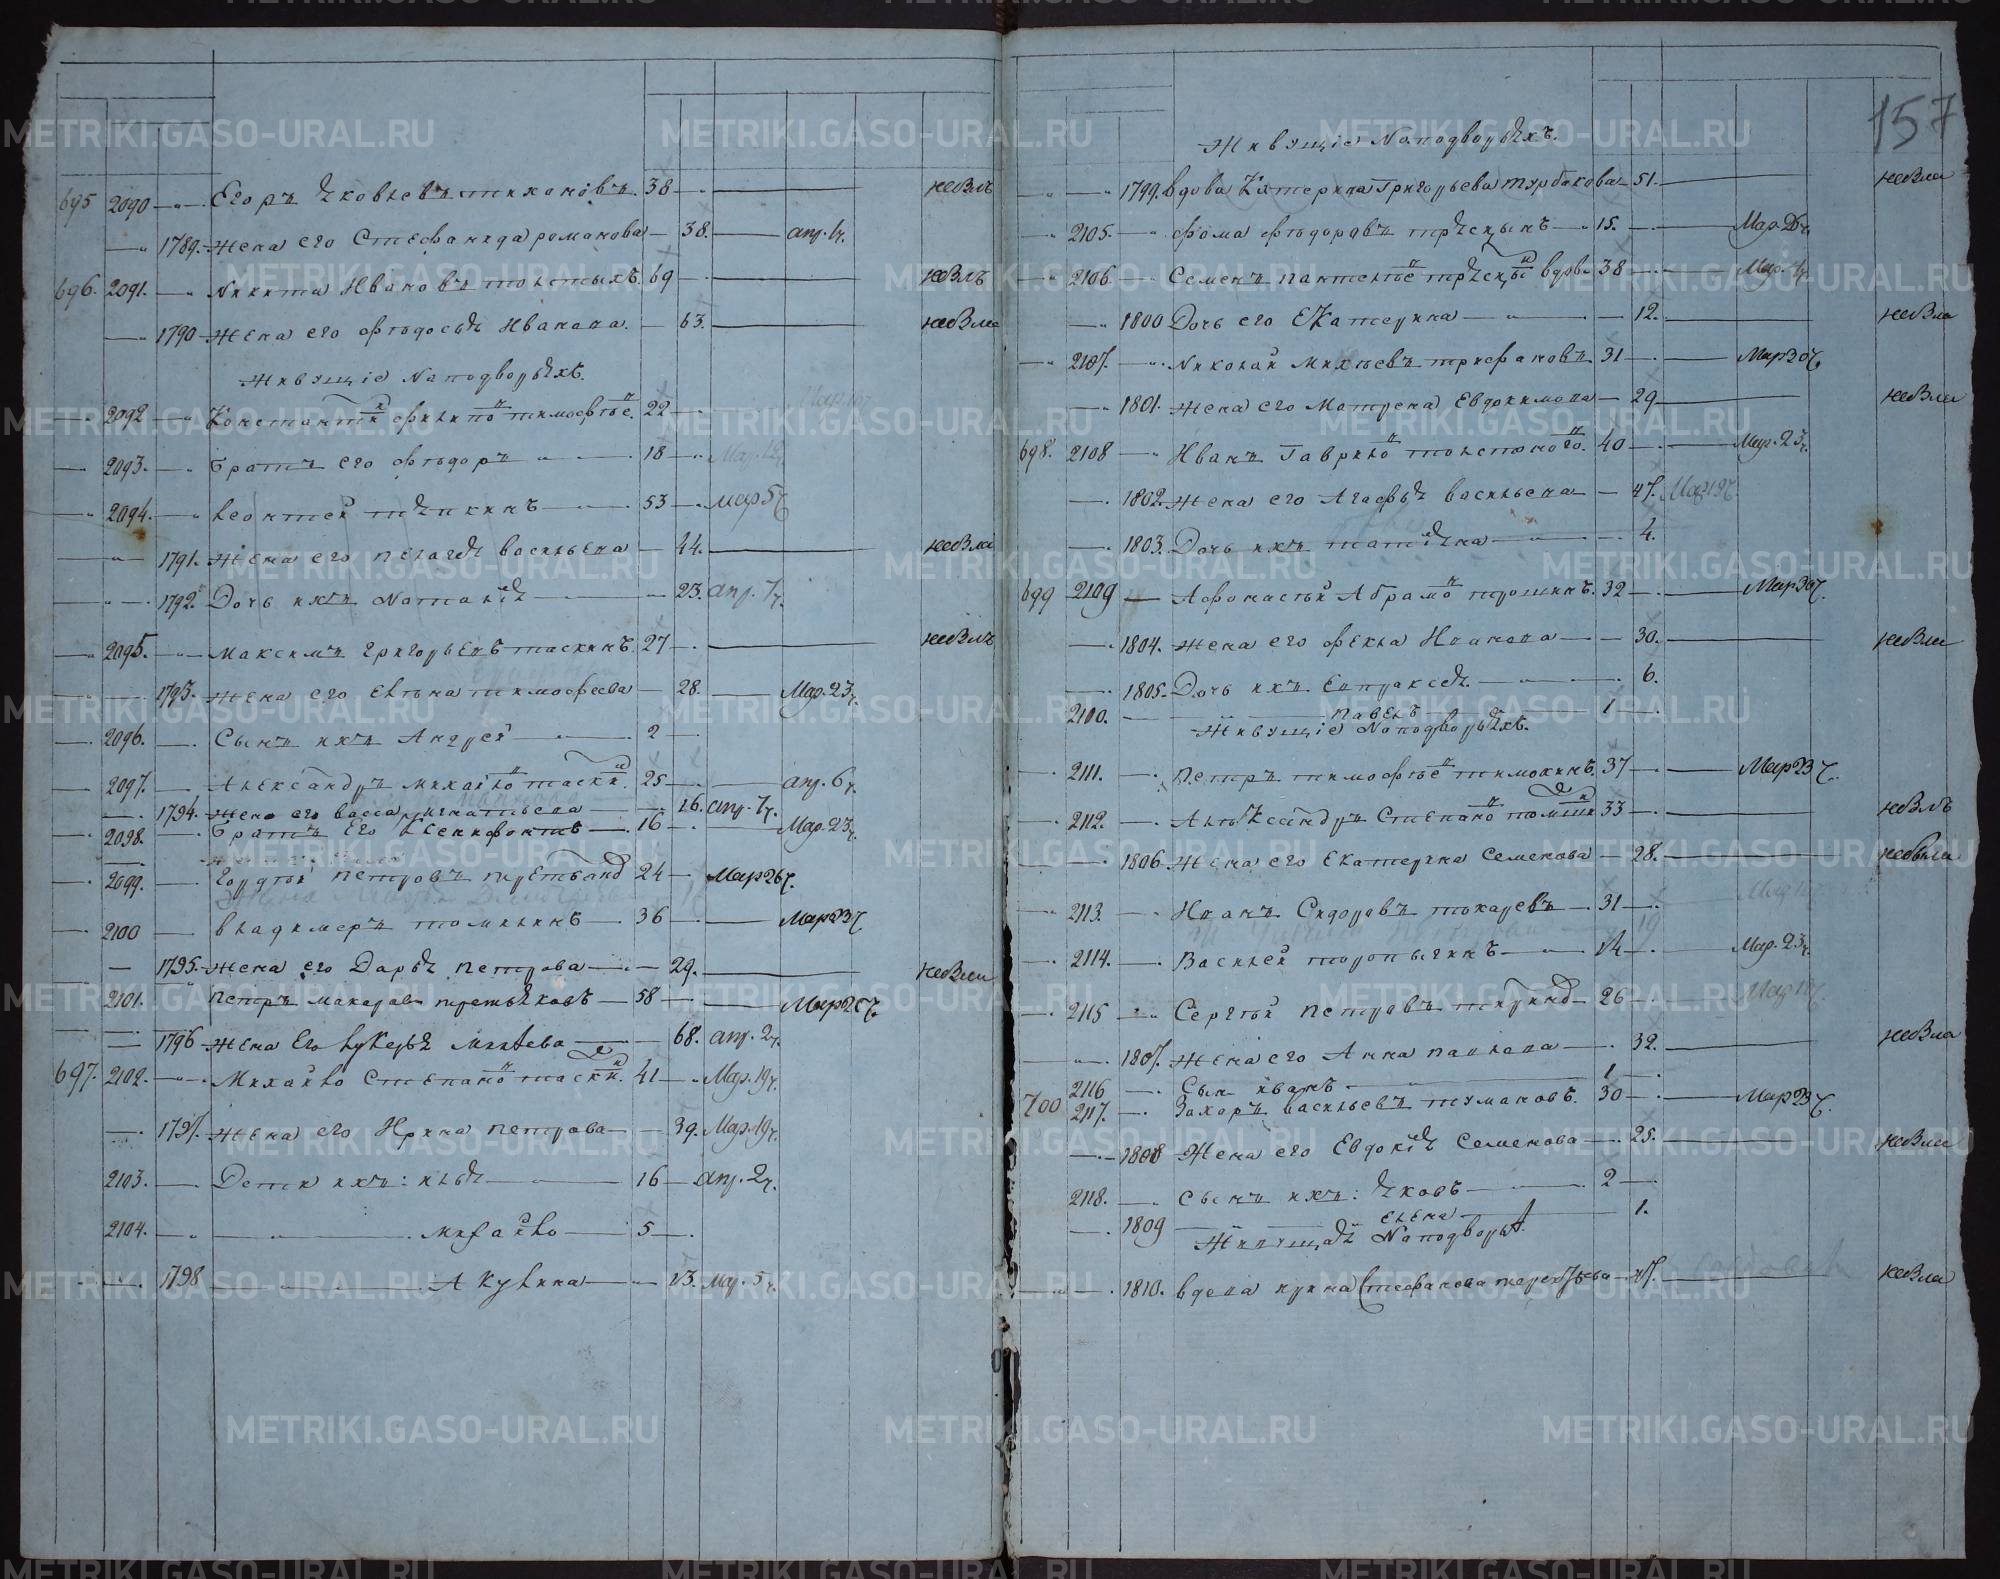 695 2090 Егоръ Яковлевъ тихановъ. 38 небылъ
1789. Жена его Стефанида романова 38. апр. 1ч.
696. 2091. Никита Ивановъ толстыхъ. 69 небылъ
1790 Жена его Ѳедосья Иванова. 63. небыла
Живущіе Наподворьяхъ.
2092 22 Мар.
2093. Братъ его Ѳедоръ 18 Мар.
2094. Леонтей тяпкинъ 53 Мар 5ч
1791. Жена его Пелагея васильева 44. небыла
1792. Дочь ихъ Наталія 23. апр. 7ч.
2095. Максимъ григорьевъ таскинъ. 27 небылъ
1793. Жена его Елена тимофеева 28. Мар. 23ч.
2096. Сынъ ихъ Андрей 2
2097. Александръ михайло таски 25 апр. 6ч.
1794. Жена его васса игнатьева 26. апр. 7ч.
2098. Братъ Его Ксенофонтъ 16 Мар. 23ч.
2099. Гордѣй Петровъ 24 Мар 26ч.
2100 владимеръ томилинъ 36 Мар 23ч.
1795. Жена его Дарья Петрова 29. небыла
2101. Петръ макаров третьяковъ 58 Мар
1796 Жена Его Лукерья Михѣева 68. апр. 2ч.
697. 2102. Михайло Степано таски. 41 Мар. 19ч.
1797. Жена его Ирина Петрова 39. Мар. 19ч.
2103. Дети ихъ: илья 16 апр. 2ч.
2104. Михайло 5
1798 Акулина 13. мар. 5ч.
157
Живущіе Наподворьяхъ.
1799. вдова Катерина Григорьева Турбакова 51. небыла
2105. Ѳома Ѳедоровъ 15. Мар.
2106 Семенъ Пантелѣе вдов 38 Мар.
1800 Дочь его Екатерина 12. небыла
2107. Николай Михѣевъ трифановъ 31 Мар 30ч.
1801. Жена его Матрена Евдокимова 29 небыла
698. 2108 Иванъ Гаврило толстоного. 40 Мар. 23ч.
1802. Жена его Агафья васильева 47. Мар. 19ч.
1803. Дочь ихъ татіяна 4.
699 2109 Афонасѣй Абрамо трошинъ. 32 Мар 30ч.
1804. Жена его Ѳекла Иванова 30. небыла
1805. Дочь ихъ Евпраксея 6.
2110. павелъ 1
Живущіе Наподворьяхъ.
2111. Петръ тимофѣе тимохинъ. 37 Мар 23ч.
2112. Александръ Степано томили 33 небылъ
1806. Жена его Екатерина Семенова 28. небыла
2113. Иванъ Сидоравъ токаревъ 31 Мар
2114. Василей торопыгинъ Мар. 23ч.
2115 Сергѣй Петровъ 26 Мар
1807. Жена его Анна павлова 32. небыла
2116 Сын иванъ 1
700 2117. Захаръ васильевъ тумановъ. 30 Мар 23ч.
1808 Жена его Евдокія Семенова 25. небыла
2118. Сынъ ихъ: Яковъ 2
1809 Елена 1.
Живущая Наподворьѣ
1810. вдова Стефанова небыла